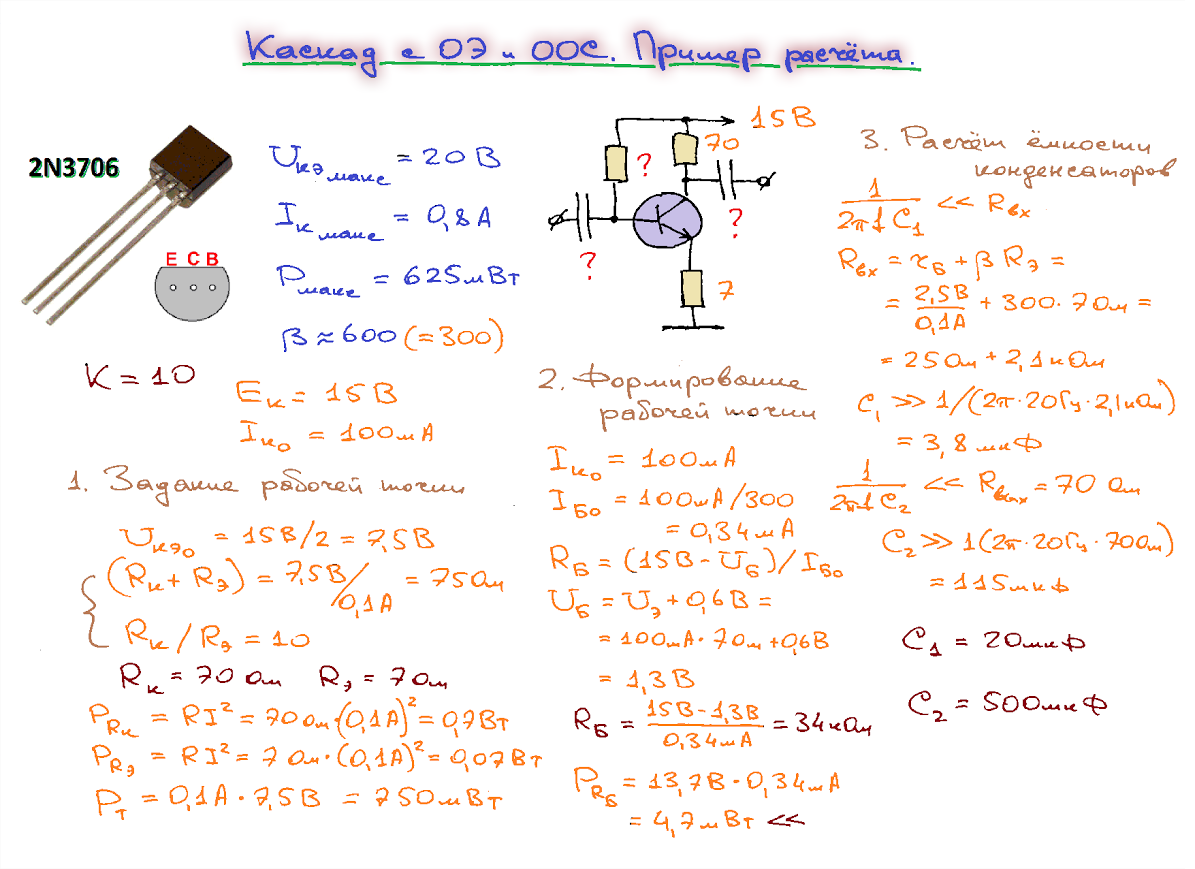 Каскад с ОЭ и ООС. Пример расчёта.
2N3706
E C B
Uкэ макс = 20 В
Iк макс = 0,8 А
Pмакс = 625мВт
β ≈ 600 (=300)
K = 10
Eк = 15 В
Iк₀ = 100мА
1. Задание рабочей точки
Uкэ₀ = 15В/2 = 7,5В
(Rк + Rэ) = 7,5В/0,1А = 75Ом
Rк / Rэ = 10
Rк = 70 Ом Rэ = 7 Ом
PRк = RI² = 70 Ом·(0,1А)² = 0,7Вт
PRэ = RI² = 7 Ом·(0,1А)² = 0,07Вт
Pт = 0,1А · 7,5В = 750мВт
15В
70
?
?
?
7
2. Формирование
рабочей точки
Iк₀ = 100мА
Iб₀ = 100мА/300
= 0,34мА
Rб = (15В - Uб)/Iб₀
Uб = Uэ + 0,6В =
= 100мА · 7Ом + 0,6В
= 1,3В
Rб = 15В - 1,3В / 0,34мА = 34кОм
PRб = 13,7В · 0,34мА
= 4,7мВт <<
3. Расчёт ёмкости
конденсаторов
1 / 2πfC₁ << Rвх
Rвх = rб + βRэ =
= 2,5В / 0,1А + 300 · 7Ом =
= 25Ом + 2,1кОм
C₁ >> 1/(2π·20Гц·2,1кОм)
= 3,8мкФ
1 / 2πfC₂ << Rвых = 70 Ом
C₂ >> 1(2π·20Гц·70Ом)
= 115мкФ
C₁ = 20мкФ
C₂ = 500мкФ